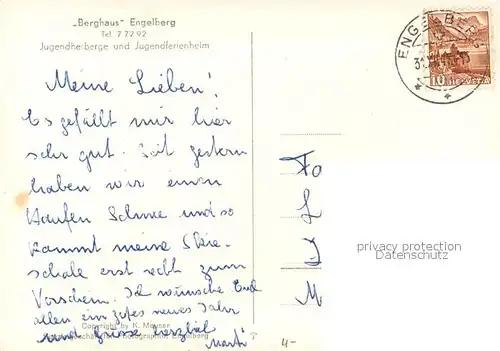 „Berghaus" Engelberg
Tel. 7 72 92
Jugendherberge und Jugendferienheim
ENGELBERG
10 HELVETIA
Meine Lieben!
Es gefällt mir hier
sehr gut. Seit gestern
haben wir einen
Haufen Schnee und so
kommt meine Skie-
schale erst recht zum
Vorschein. Ich wünsche Euch
allen ein gutes neues Jahr
und grüsse herzlich
Copyright by K. Meuser
Engelberg
privacy protection
Datenschutz
4-